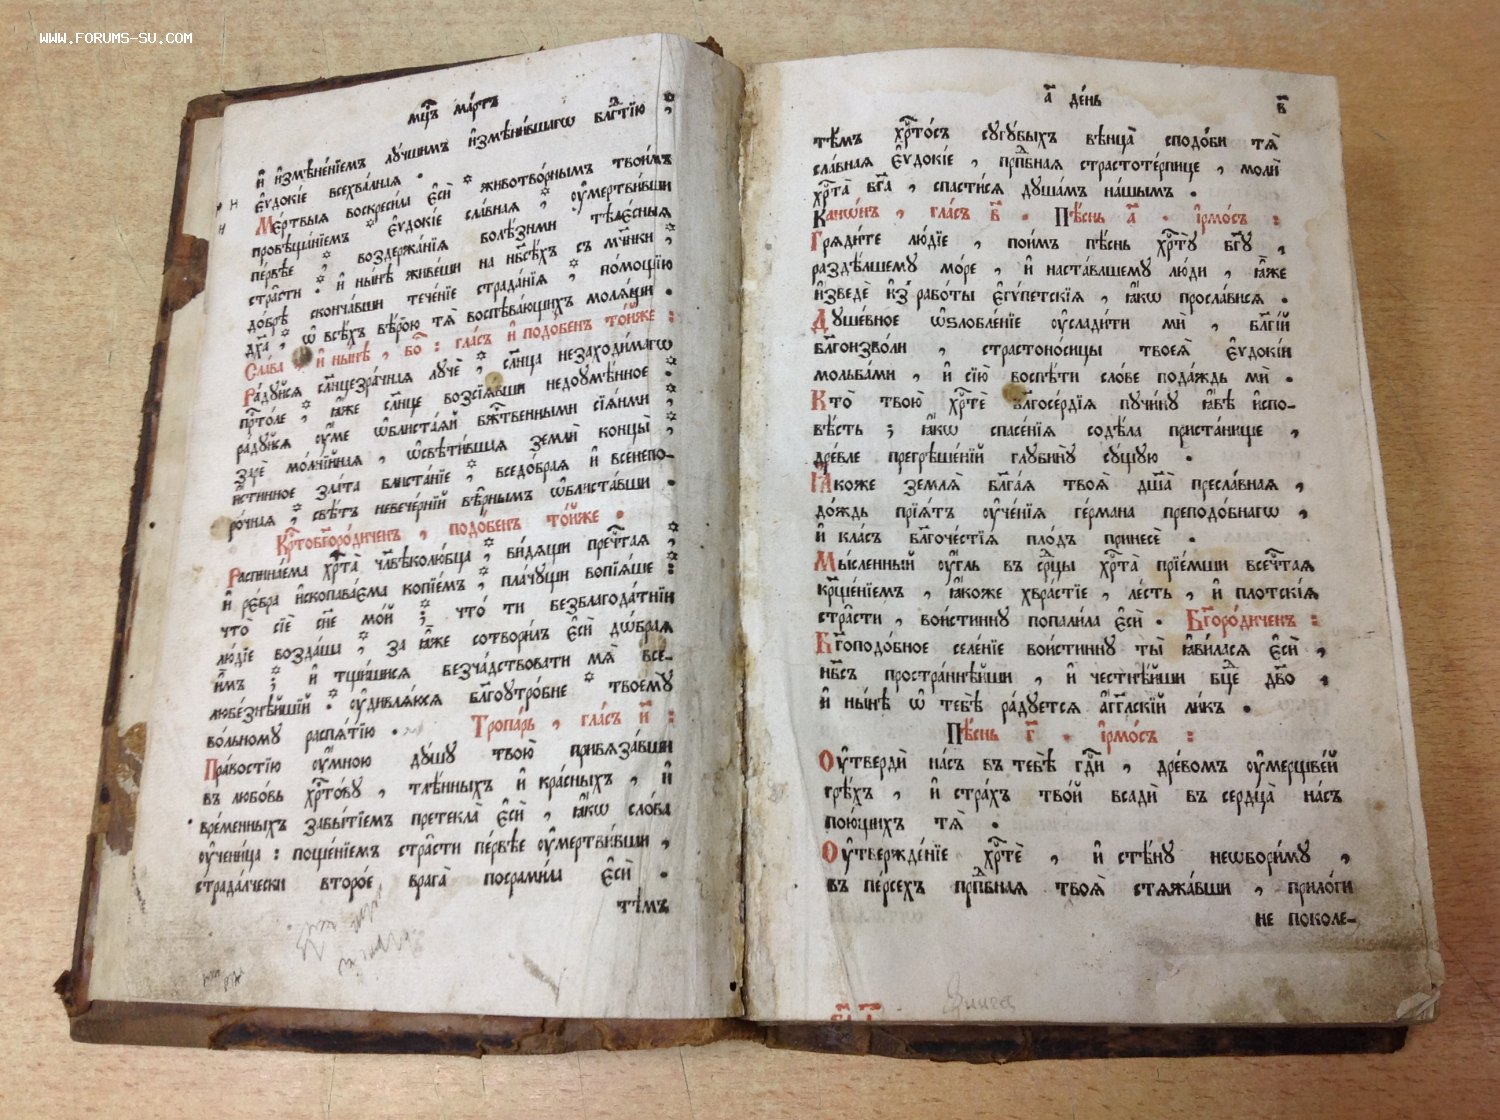 WWW.FORUMS-SU.COM
мц҃ъ ма́ртъ
и҆ и҆змѣне́нїемъ лу́чшимъ и҆змѣни́вшагѡ бл҃гтїю ,
є҆ѵдокі́е всехва́лная .
Ме́ртвыѧ воскреси́ла є҆сѝ * животво́рнымъ твои́мъ
провѣща́нїемъ * є҆ѵдокі́е сла́внаѧ , ᲂу҆мертви́вши
пе́рвѣе , воздержа́нїѧ болѣ́зньми тѣле́сныѧ
стра̑сти : и҆ ны́нѣ живе́ши на нб҃сѣ́хъ съ мч҃нки ,
до́брѣ сконча́вши тече́нїе страда́нїѧ , по́мощїю
дх҃а , ѡ҆ всѣ́хъ вѣ́рою тѧ̀ воспѣва́ющихъ молѧ́щи .
Сла́ва , и҆ ны́нѣ , бо҃ : гла́съ и҆ подо́бенъ то́йже :
Ра́дуйсѧ сл҃нцезра́чнаѧ лучѐ , сл҃нца незаходи́магѡ
прⷭ҇то́ле , ꙗ҆́же сл҃нце возсїѧ́вши недоумѣ́нное .
ра́дуйсѧ ᲂу҆́ме ѡ҆блиста́ѧй бж҃твенными сїѧ́ньми ,
зарѐ мо́лнїйнаѧ , ѡ҆свѣти́вшаѧ землѝ концы̀ ,
и҆́стинное зла́та блиста́нїе , вседо́браѧ и҆ всенепо-
ро́чнаѧ , свѣ́тъ невече́рнїй вѣ̑рнымъ ѡ҆блиста́вши .
Крⷭ҇тобг҃оро́диченъ , подо́бенъ то́йже .
Распина́ема хрⷭ҇та̀ чл҃вѣколю́бца , ви́дѧщи преч҃таѧ ,
и҆ ре́бра и҆скопава́ема копїе́мъ , пла́чущи вопїѧ́ше :
что̀ сїѐ сн҃е мо́й ; что́ ти безблагода́тнїи
лю́дїе возда́ша ; за ꙗ҆̀же сотвори́лъ є҆сѝ дѡ́браѧ
и҆̀мъ ; и҆ тщи́шисѧ безча́дствовати мѧ̀ все-
любе́знѣйшїй : ᲂу҆дивлѧ́юсѧ бл҃гоутро́бне * твоемꙋ̀
во́льному распѧ́тїю .
Тропа́рь , гла́съ и҃ :
Пра́востїю ᲂу҆́мною дꙋ́шꙋ твою̀ привѧза́вши
въ любо́вь хрⷭ҇то́вꙋ , тлѣ́нныхъ и҆ кра́сныхъ , и҆
вре́менныхъ забы́тїемъ претекла̀ є҆сѝ , ꙗ҆́кѡ сло́ва
ᲂу҆чени́ца : поще́нїемъ стра̑сти пе́рвѣе ᲂу҆мертви́вши ,
страда́лчески второ́е врага̀ посрами́ла є҆сѝ .
тѣ́мъ
а҃ де́нь
в҃
тѣ́мъ хрⷭ҇то́съ сугу́быхъ вѣне́цъ сподо́би тѧ̀
сла́внаѧ є҆ѵдокі́е , прпⷣбнаѧ страстоте́рпице , молѝ
хрⷭ҇та̀ бг҃а , спасти́сѧ душа́мъ на́шымъ .
Канѡ́нъ , гла́съ в҃ . Пѣ́снь а҃ . і҆рмо́съ :
Грѧди́те лю́дїе , пои́мъ пѣ́снь хрⷭ҇тꙋ̀ бг҃ꙋ ,
раздѣ́лшемꙋ мо́ре , и҆ наста́влшемꙋ лю́ди , ꙗ҆̀же
и҆зведѐ и҆з̾ рабо́ты є҆гѵ́петскїѧ , ꙗ҆́кѡ просла́висѧ .
Душе́вное ѡ҆ѕлобле́нїе ᲂу҆слади́ти мѝ , бл҃гі́й
бл҃гоизво́ли , страстоно́сицы твоеѧ̀ є҆ѵдокі́и
мольба́ми , и҆ сїю̀ воспѣ́ти сло́ве пода́ждь мѝ .
Кто̀ твою̀ хрⷭ҇тѐ бл҃госе́рдїѧ пучи́ну ꙗ҆́вѣ и҆спо-
вѣ́сть ; ꙗ҆́кѡ спасе́нїѧ содѣ́ла приста́нище ,
дре́вле прегрѣше́нїй глубинꙋ̀ сꙋ́щꙋю .
Ꙗ҆́коже землѧ̀ бл҃га́ѧ твоѧ̀ дш҃а̀ пресла́внаѧ ,
до́ждь прїѧ́тъ ᲂу҆че́нїѧ ге́рмана преподо́бнагѡ ,
и҆ кла́съ бл҃гоче́стїѧ пло́дъ принесѐ .
Мы́сленный ᲂу҆́гль въ ср҃цы хрⷭ҇та̀ прїе́мши всечⷭ҇таѧ
крⷳ҇щше́нїемъ , ꙗ҆́коже хвра́стїе , ле́сть , и҆ плотскі́ѧ
стра̑сти , вои́стинну попали́ла є҆сѝ . Бг҃оро́диченъ :
Бг҃оподо́бное селе́нїе вои́стинну ты̀ ꙗ҆ви́ласѧ є҆сѝ ,
нб҃съ простра́ннѣйши , и҆ честнѣ́йши бц҃е дв҃о ,
и҆ ны́нѣ ѡ҆ тебѣ̀ ра́дуетсѧ а҆́гг҃лскїй ли́къ .
Пѣ́снь г҃ . і҆рмо́съ :
Оу҆твердѝ на́съ въ тебѣ̀ гдⷭ҇и , дре́вомъ ᲂу҆мерщве́й
грѣ́хъ , и҆ стра́хъ тво́й всадѝ въ сердца̀ на́съ
пою́щихъ тѧ̀ .
Оу҆твержде́нїе хрⷭ҇тѐ , и҆ стѣ́нꙋ неѡбори́мꙋ ,
въ пе́рсехъ прпⷣбнаѧ твоѧ̀ стѧжа́вши , прило́ги
не поколе-
Книга